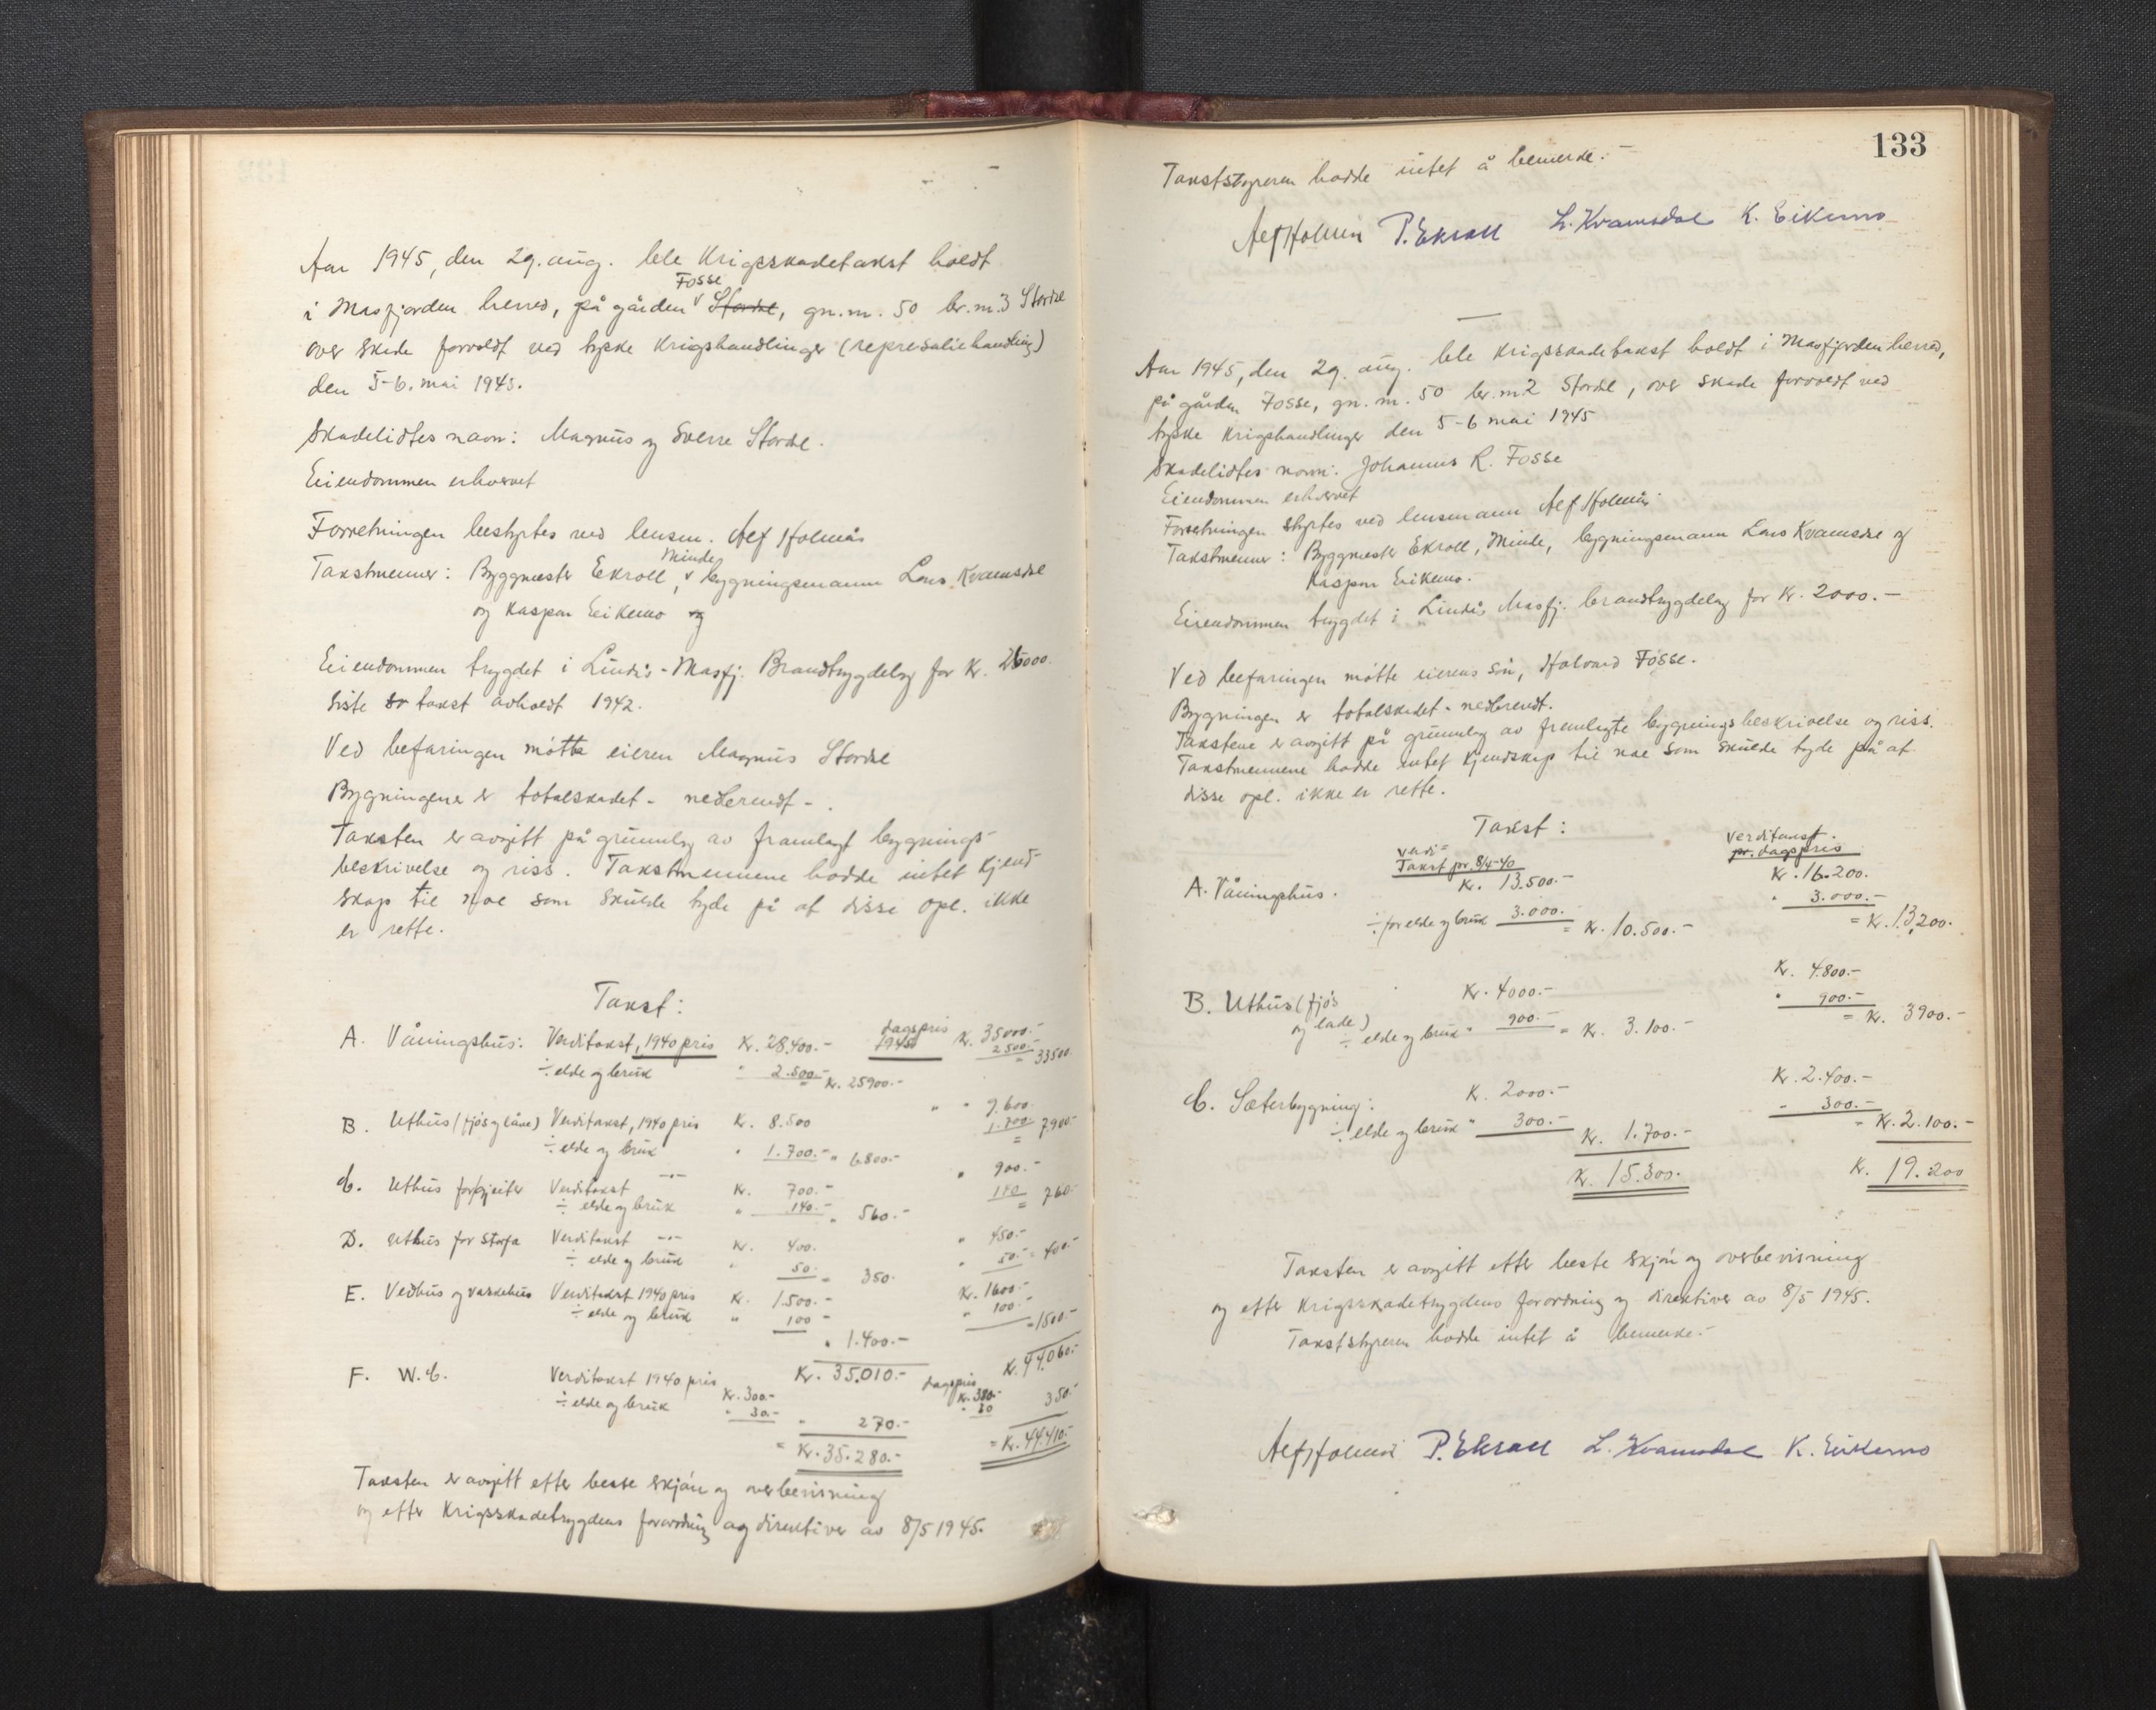 Aar 1945, den 29. aug. ble Krigsskadetakst holdt
Fosse
i Masfjorden herred, på gården v Stordal, gn.nr. 50 br.nr. 3 Stordal
over skade forvoldt ved tyske Krigshandlinger (represaliehandling)
den 5-6. mai 1945.
Skadelidtes navn: Magnus og Sverre Stordal.
Eiendommen erhvervet
Forretningen bestyrtes ved lensm. Alf Holmås
Minde
Takstmenner: Byggmester Ekroll, v bygningsmann Lars Kvamsdal
og Kaspar Eikemo og
Eiendommen trygdet i Lindås-Masfj. Brandtrygdelag for Kr. 26000.
Siste takst avholdt 1942.
Ved befaringen møtte eieren Magnus Stordal
Bygningene er totalskadet - nedbrendt - .
Taksten er avgitt på grunnlag av framlagt bygnings-
beskrivelse og riss. Takstmennene hadde intet kjend-
skap til noe som skulde tyde på at disse opl. ikke
er rette.
Takst:
A. Våningshus: Verditakst, 1940 pris Kr. 28.400.- dagspris 1945 Kr. 35000.-
÷ elde og bruk " 2.500.- = Kr. 25900.- 2500.- = 33500
B. Uthus (fjøs og låve) Verditakst, 1940 pris Kr. 8.500 " " 9.600.
÷ elde og bruk " 1.700.- " 6.800.- 1.700 = 7900.-
C. Uthus for gjeiter Verditakst -"- Kr. 700.- " 900.-
÷ elde og bruk " 140.- " 560.- 140 = 760.-
D. Uthus for Storfa Verditakst -"- Kr. 400. " 450.-
÷ elde og bruk " 50. = 350. " 50.- = 400.-
E. Vedhus og vaskehus Verditakst 1940 pris Kr. 1.500.- Kr. 1600.-
÷ elde og bruk " 100 - " 100.- = 1500.-
" 1.400.-
Kr. 35.010.- Kr. 44.060.-
F. W.C. Verditakst 1940 pris Kr. 300.- dagspris Kr. 380.-
÷ elde og bruk " 30.- " 270.- " 30 350.-
= Kr. 35.280.- = Kr. 44.410.-
Taksten er avgitt efter beste skjøn og overbevisning
og efter Krigsskadetrygdens forordning og direktiver av 8/5 1945.
133
Takststyreren hadde intet å bemerke.-
Alf Holmås P. Ekroll L. Kvamsdal K. Eikemo
Aar 1945, den 29. aug. ble Krigsskadetakst holdt i Masfjorden herred,
på gården Fosse, gn.nr. 50 br.nr 2 Stordal, over skade forvoldt ved
tyske Krigshandlinger den 5-6 mai 1945
Skadelidtes navn: Johannes R. Fosse
Eiendommen erhvervet
Forretningen styrtes ved lensmann Alf Holmås.
Takstmenner: Byggmester Ekroll, Minde, bygningsmann Lars Kvamsdal og
Kaspar Eikemo.
Eiendommen trygdet i Lindås Masfj. brandtrygdelag for Kr. 2000.-
Ved befaringen møtte eierens søn, Halvard Fosse.
Bygningen er totalskadet - nedbrendt.
Takstene er avgitt på grunnlag av fremlagte bygningsbeskrivelse og riss.
Takstmennene hadde intet kjendskap til noe som skulde tyde på at
disse opl. ikke er rette.
Takst:
verdi- verditakst.
Takst pr. 8/4-40 pr. dagspris
A. Våningshus. Kr. 13.500.- Kr. 16.200.
÷ for elde og bruk 3.000.- = Kr. 10.500.- " 3.000.- = Kr. 13,200.
B. Uthus (fjøs Kr. 4000.- Kr. 4.800.-
og lade) ÷ elde og bruk " 900.- = Kr. 3.100.- " 900.- = Kr. 3900.-
C. Sæterbygning: Kr. 2000.- Kr. 2.400.-
÷ elde og bruk " 300.- Kr. 1.700.- - 300.- = Kr. 2.100.-
Kr. 15.300.- Kr. 19.200
Taksten er avgitt efter beste skjøn og overbevisning
og efter Krigsskadetrygdens forordning og direktiver av 8/5 1945.
Takststyreren hadde intet å bemerke.-
Alf Holmås P. Ekroll L. Kvamsdal K. Eikemo